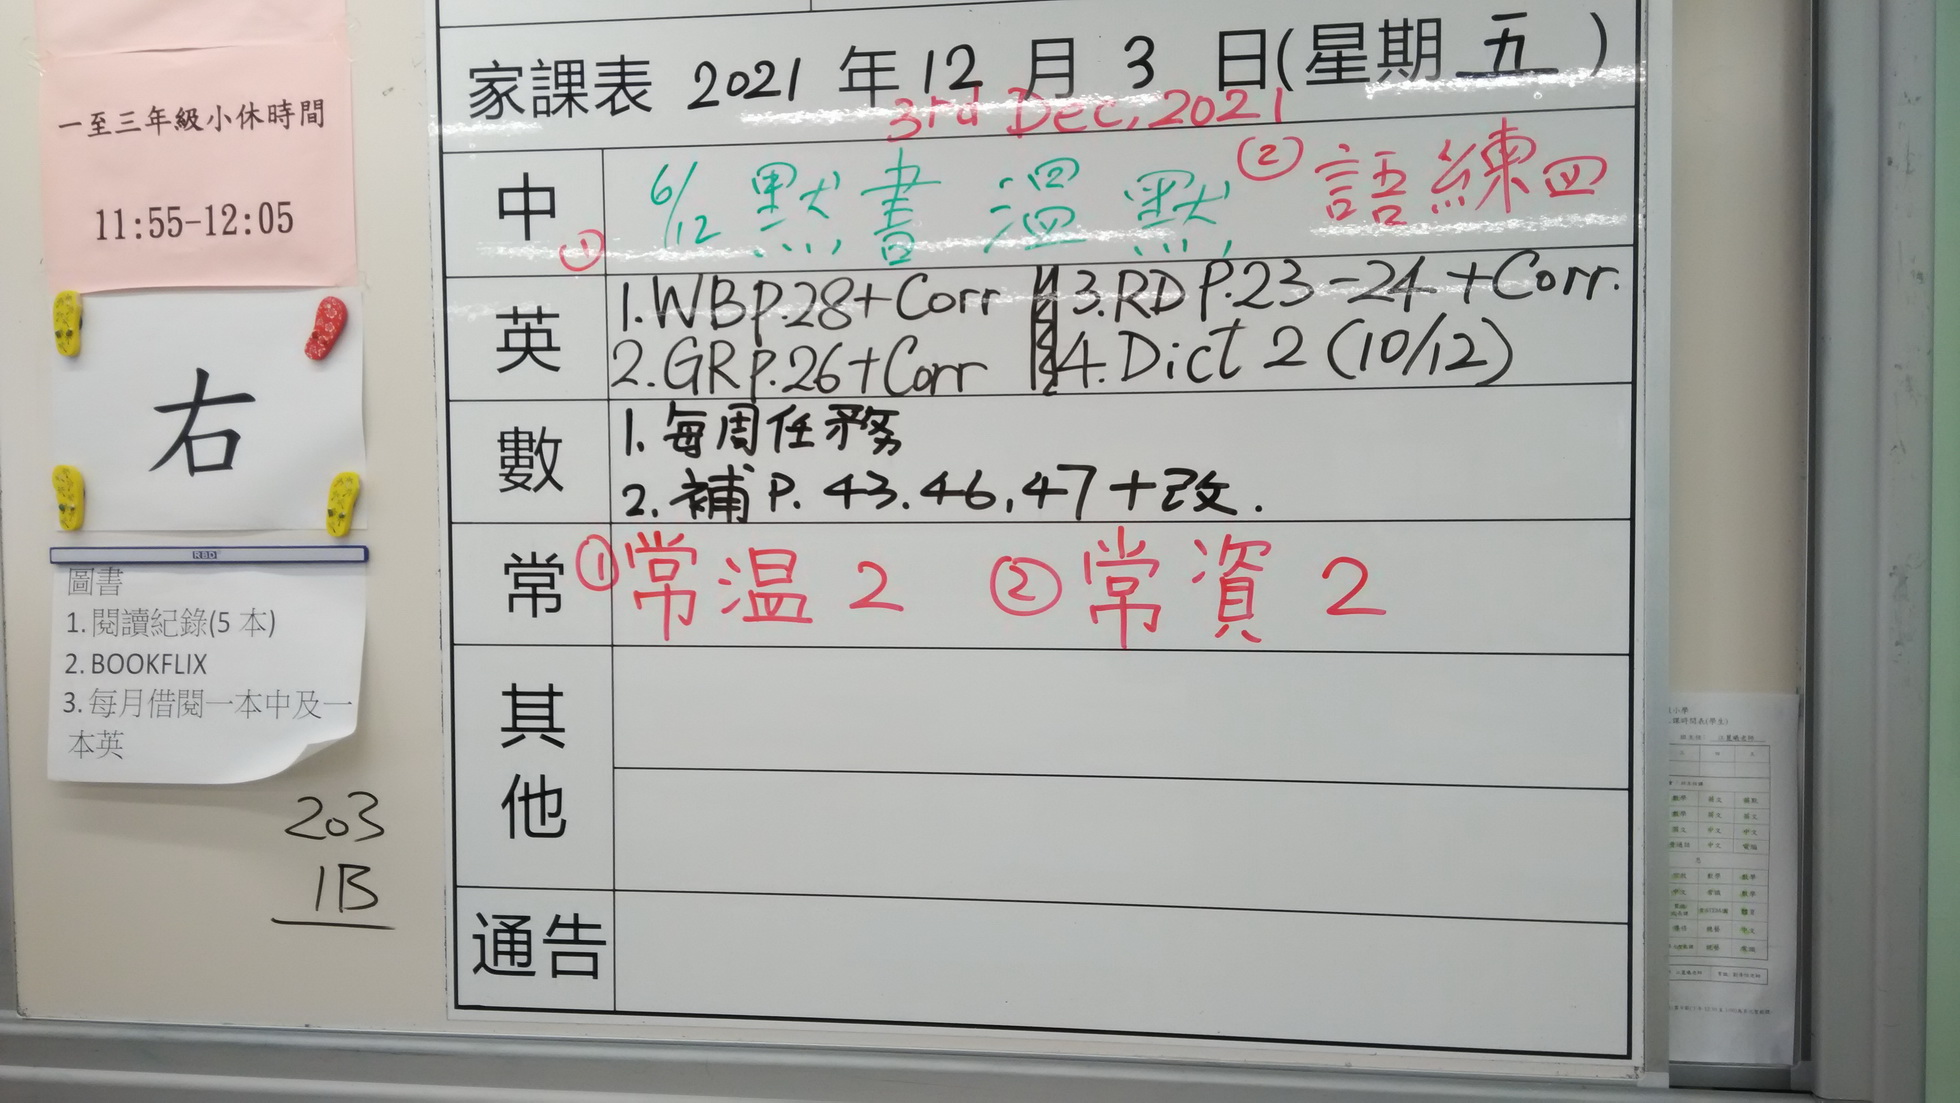 一至三年級小休時間
11:55-12:05
右
RBD
圖書
1. 閱讀紀錄(5 本)
2. BOOKFLIX
3. 每月借閱一本中及一
本英
203
1B
家課表 2021 年 12 月 3 日(星期 五 )
3rd Dec, 2021
中 ① 6/12 默書 溫默 ② 語練四
英
1. WB P.28 + Corr
2. GR P.26 + Corr
3. RD P.23-24 + Corr.
4. Dict 2 (10/12)
數
1. 每周任務
2. 補 P. 43. 46, 47 + 改.
常 ① 常温 2 ② 常資 2
其他
通告